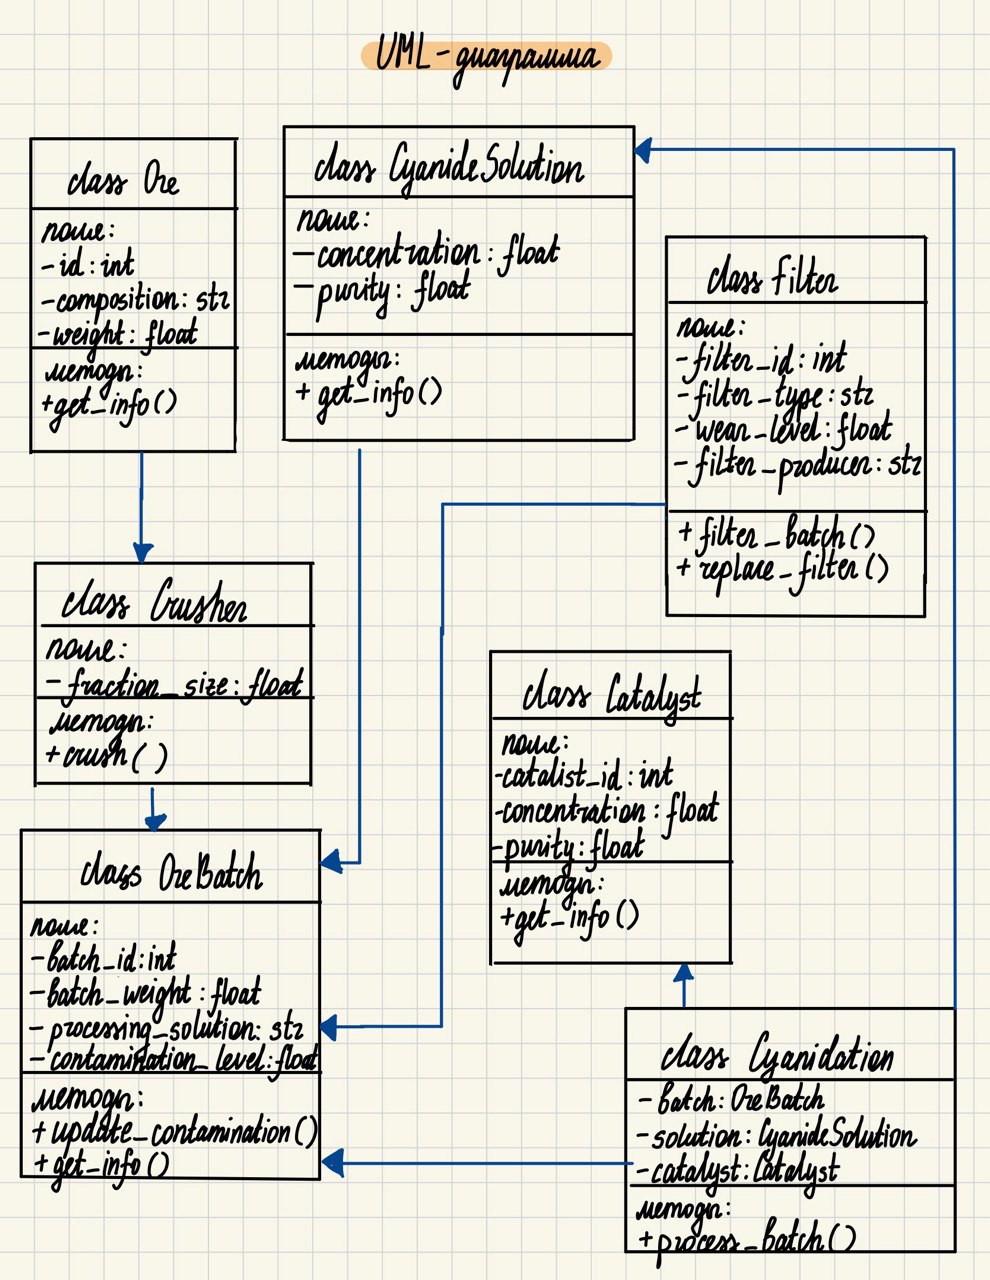 UML-диаграмма
class Ore
поле:
- id: int
- composition: str
- weight: float
методы:
+ get_info()
class CyanideSolution
поле:
- concentration: float
- purity: float
методы:
+ get_info()
class Filter
поле:
- filter_id: int
- filter_type: str
- wear_level: float
- filter_producer: str
+ filter_batch()
+ replace_filter()
class Crusher
поле:
- fraction_size: float
методы:
+ crush()
class Catalyst
поле:
- catalist_id: int
- concentration: float
- purity: float
методы:
+ get_info()
class OreBatch
поле:
- batch_id: int
- batch_weight: float
- processing_solution: str
- contamination_level: float
методы:
+ update_contamination()
+ get_info()
class Cyanidation
- batch: OreBatch
- solution: CyanideSolution
- catalyst: Catalyst
методы:
+ process_batch()